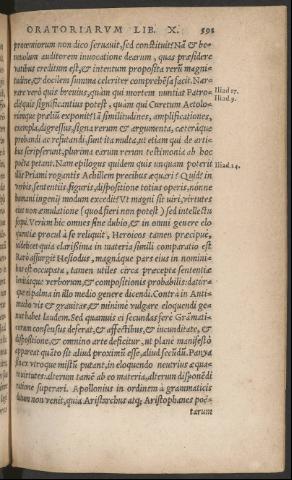 ORATORIARVM LIB. X. 591
proœmiorum non dico seruauit, sed constituit? Nã & be-
neuolum auditorem inuocatione dearum, quas præsidere
vatibus creditum est, & intentum proposita rerũ magni-
tudine, & docilem summa celeriter comprehẽsa facit. Nar-
rare verò quis breuius, quàm qui mortem nuntiat Patro-
cli: quis significantius potest, quàm qui Curetum Aetolo-
rúmque præliũ exponit? Iã similitudines, amplificationes,
exempla, digressus, signa rerum & argumenta, cæteráque
probandi ac refutandi, sunt ita multa, vt etiam qui de arti-
bus scripserunt, plurima earum rerum testimonia ab hoc
poëta petant. Nam epilogus quidem quis vnquam poterit
illis Priami rogantis Achillem precibus æquari? Quid? in
verbis, sententiis, figuris, dispositione totius operis, nónne
humani ingenij modum excedit? Vt magni sit viri, virtutes
eius non æmulatione (quod fieri non potest) sed intellectu
sequi. Verùm hic omnes sine dubio, & in omni genere elo
quentiæ procul à se reliquit, Heroicos tamen præcipuè,
videlicet quia clarissima in materia simili comparatio est
Rarò assurgit Hesiodus, magnáque pars eius in nomini-
bus est occupata, tamen vtiles circa præcepta sententiæ
lenitásque verborum, & compositionis probabilis: datúr-
que ei palma in illo medio genere dicendi. Contrà in Anti-
macho vis & grauitas, & minimè vulgare eloquendi ge-
nus habet laudem. Sed quamuis ei secundas ferè Grãmati-
corum consensus deferat, & affectibus, & iucunditate, &
dispositione, & omnino arte deficitur, vt planè manifestò
appareat quãto sit aliud proximũ esse, aliud secũdũ. Panya
sin ex vtroque mistũ putant, in eloquendo neutrius æqua-
re virtutes: alterum tamẽ ab eo materia, alterum dispõnẽdi
ratione superari. Apollonius in ordinem à grammaticis
datum non venit, quia Aristarchus atq; Aristophanes poë-
tarum
Iliad 17.
Iliad 9.
Iliad 24.